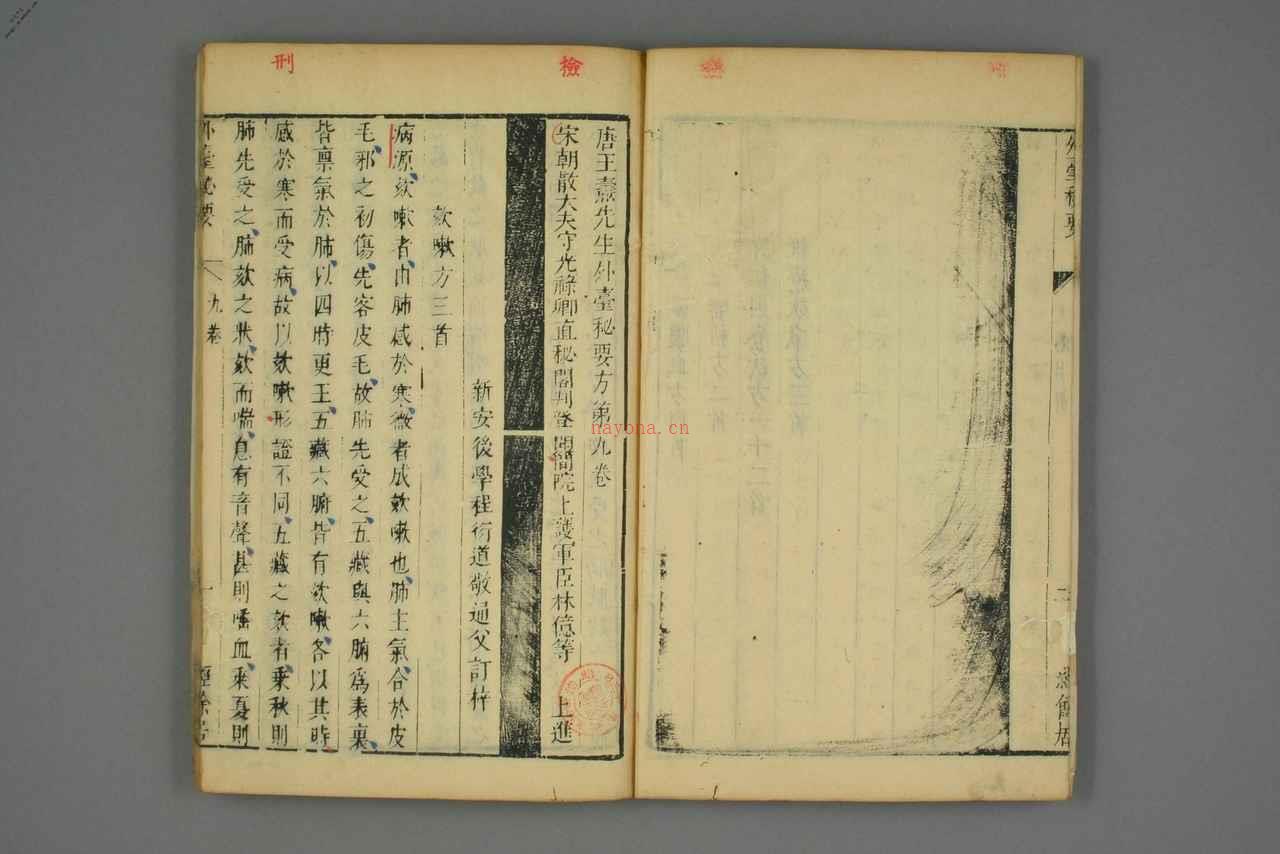 外臺秘要
二
唐王燾先生外臺秘要方第九卷
宋朝散大夫守光祿卿直秘閣判登聞簡院上護軍臣林億等 上進
新安後學程衍道敬通父訂梓
欬嗽方三首
病源欬嗽者由肺感於寒微者成欬嗽也肺主氣合於皮
毛邪之初傷先客皮毛故肺先受之五藏與六腑爲表裏
皆禀氣於肺以四時更王五藏六腑皆有欬嗽各以其時
感於寒而受病故以欬嗽形證不同五藏之欬者乘秋則
肺先受之肺欬之狀欬而喘息有音聲甚則唾血乘夏則
外臺秘要 九卷 一
檢
刑
nayona.cn